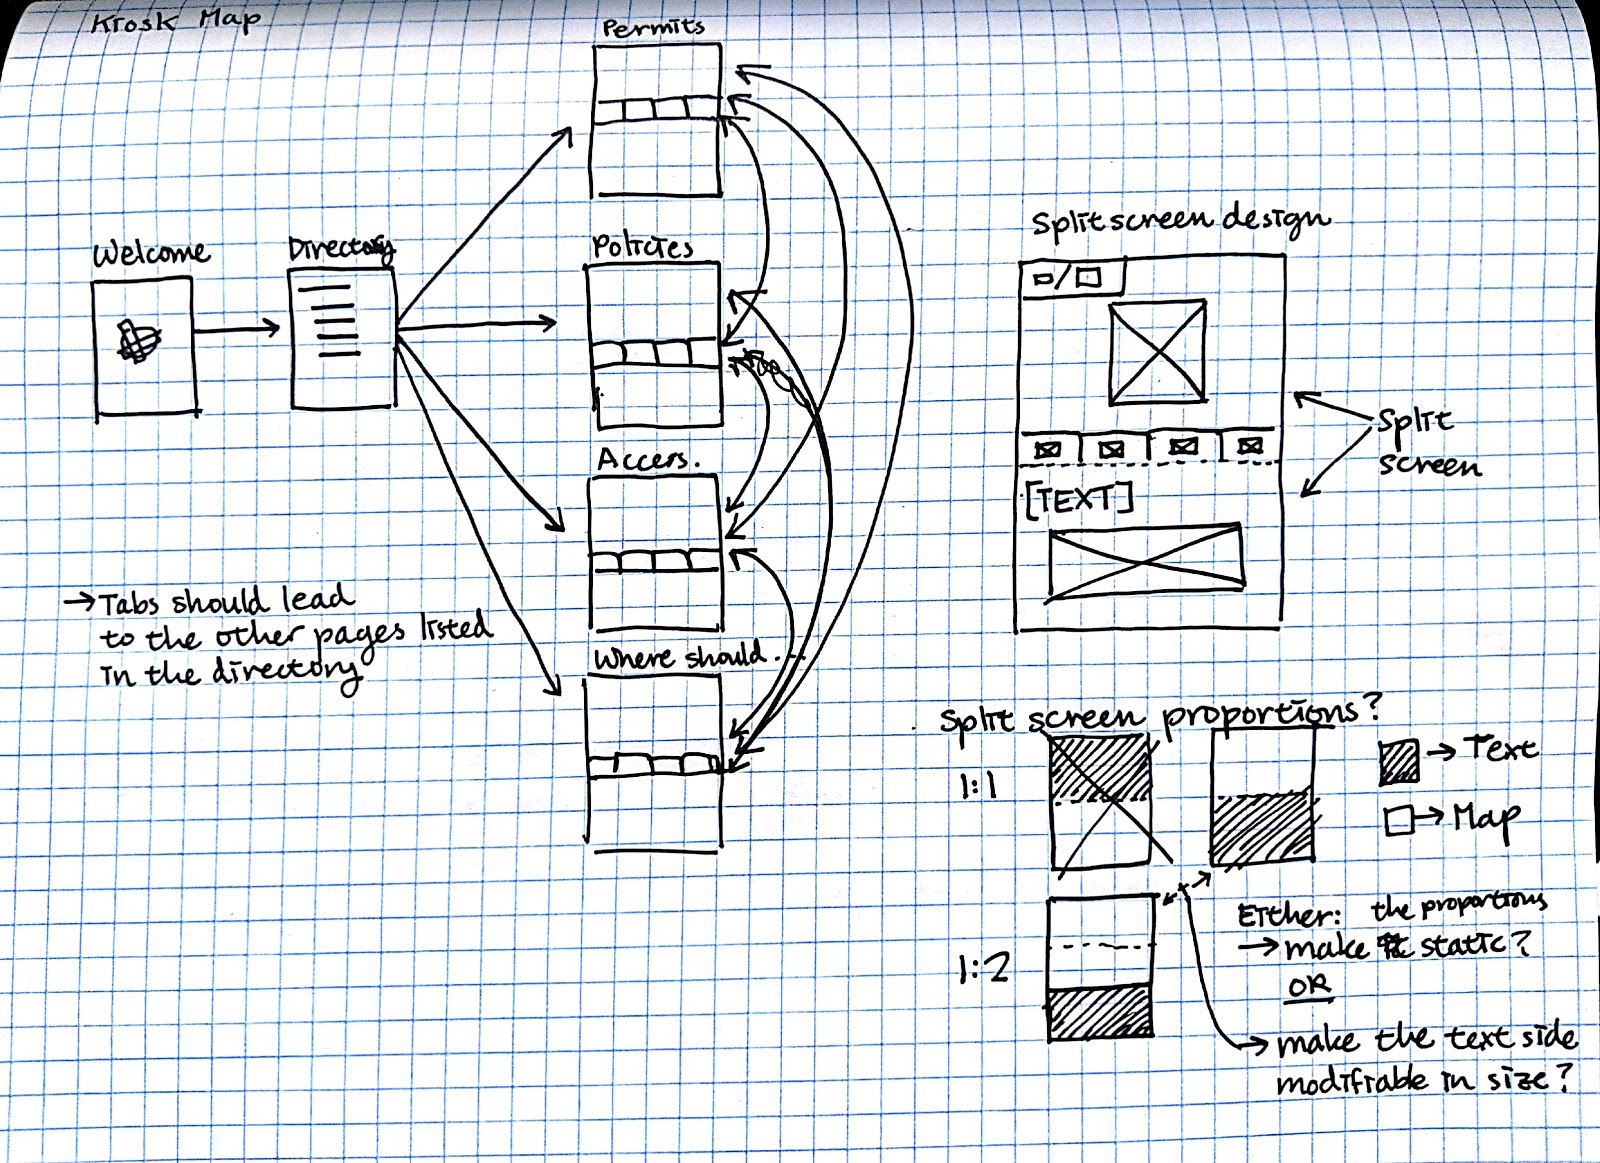 Kiosk Map
Permits
Welcome
Directory
Policies
Access.
Where should...
→ Tabs should lead
to the other pages listed
in the directory
Split screen design
[TEXT]
Split
screen
Split screen proportions?
1:1
→ Text
→ Map
1:2
Either: the proportions
→ make static?
OR
→ make the text side
modifiable in size?